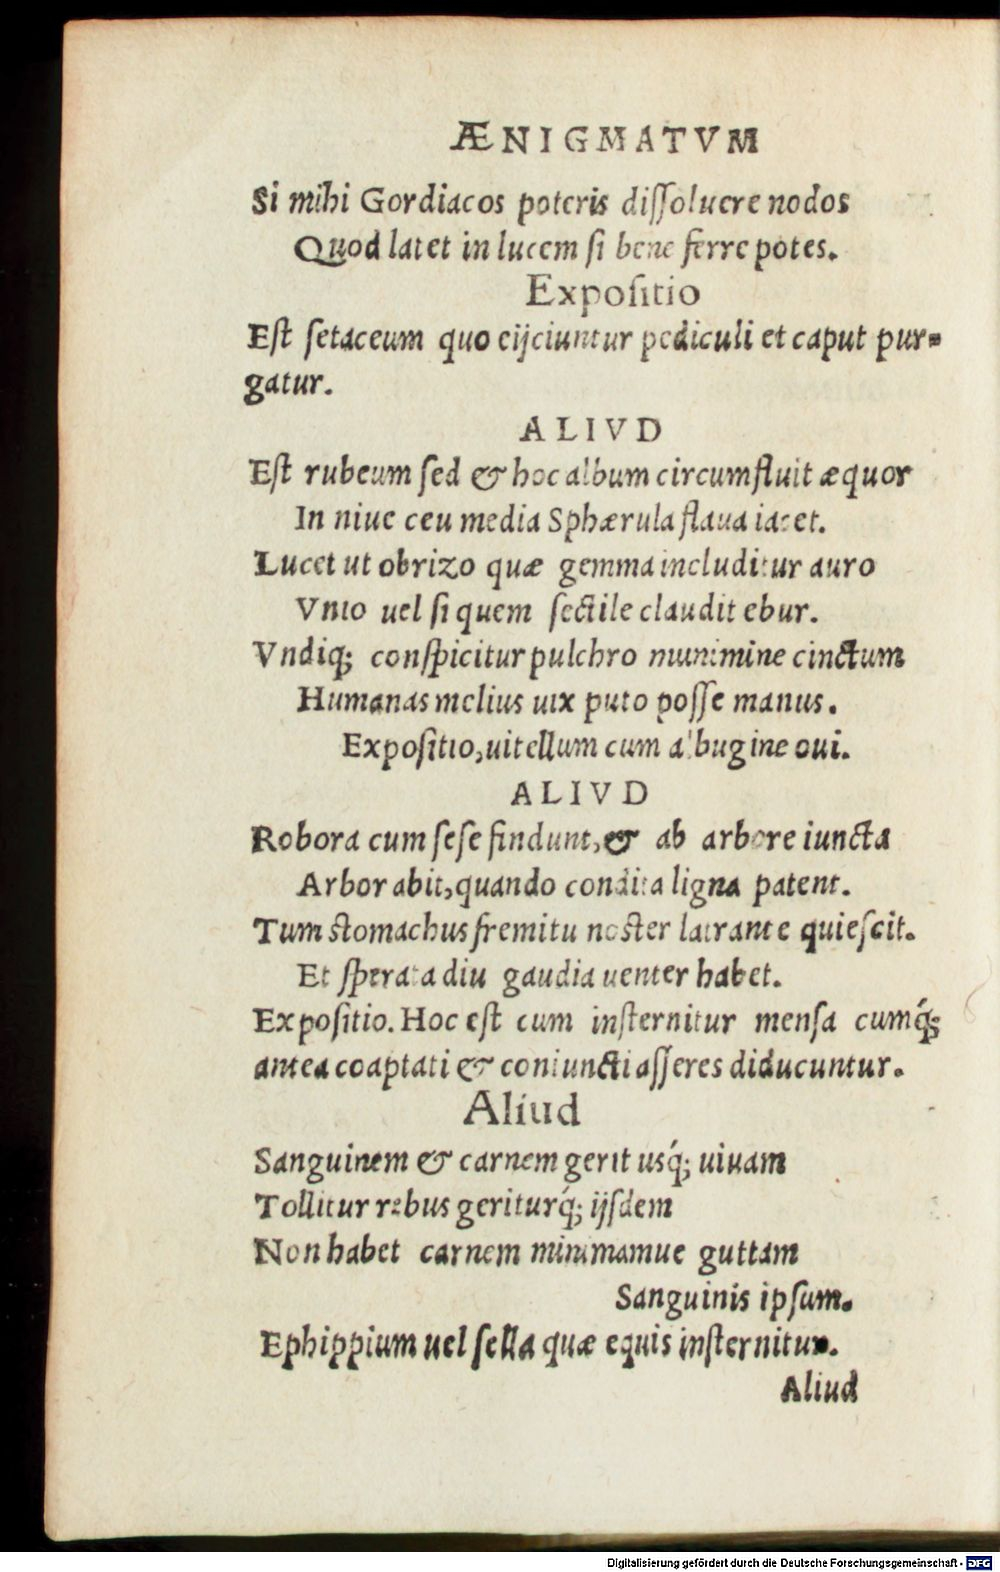 ÆNIGMATVM
Si mihi Gordiacos poteris dissoluere nodos
Quod latet in lucem si bene ferre potes.
Expositio
Est setaceum quo eijciuntur pediculi et caput pur-
gatur.
ALIVD
Est rubeum sed & hoc album circumfluit æquor
In niue ceu media Sphærula flaua iacet.
Lucet ut obrizo quæ gemma includitur auro
Vnio uel si quem sectile claudit ebur.
Vndiq; conspicitur pulchro munimine cinctum
Humanas melius uix puto posse manus.
Expositio, uitellum cum albugine oui.
ALIVD
Robora cum sese findunt, & ab arbore iuncta
Arbor abit, quando condita ligna patent.
Tum stomachus fremitu noster latrante quiescit.
Et sperata diu gaudia uenter habet.
Expositio. Hoc est cum insternitur mensa cumq́;
antea coaptati & coniuncti asseres diducuntur.
Aliud
Sanguinem & carnem gerit usq́; uiuam
Tollitur rebus geriturq́; ijsdem
Non habet carnem minimamue guttam
Sanguinis ipsum.
Ephippium uel sella quæ equis insternitur.
Aliud
Digitalisierung gefördert durch die Deutsche Forschungsgemeinschaft - DFG